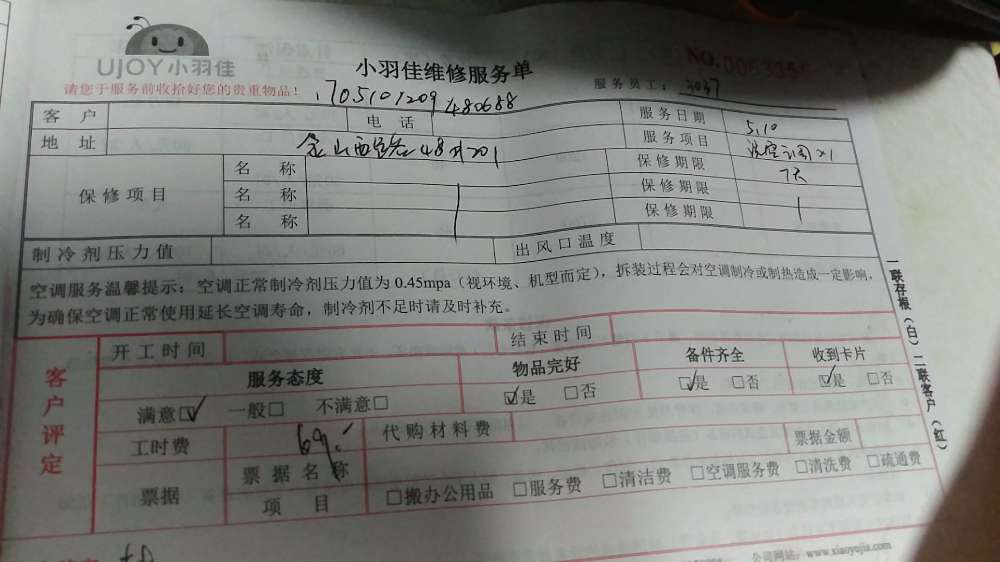 UJOY小羽佳
小羽佳维修服务单
NO.0053355
请您于服务前收拾好您的贵重物品！
服务员工： 3037
1705101209480688
客户 电话 服务日期 5.10
地址 金山西 48 201 服务项目 洗空调x1
保修项目 名称 保修期限 7天
名称 保修期限
名称 保修期限
制冷剂压力值 出风口温度
空调服务温馨提示：空调正常制冷剂压力值为0.45mpa（视环境、机型而定），拆装过程会对空调制冷或制热造成一定影响，
为确保空调正常使用延长空调寿命，制冷剂不足时请及时补充。
客户评定
开工时间 结束时间
服务态度 物品完好 备件齐全 收到卡片
满意□✓ 一般□ 不满意□ ☑是 □否 ☑是 □否 ☑是 □否
工时费 69 代购材料费
票据 票据名称 票据金额
项目 □搬办公用品 □服务费 □清洁费 □空调服务费 □清洗费 □疏通费
一联存根（白） 二联客户（红）
公司网站：www.xiaoyujia.com